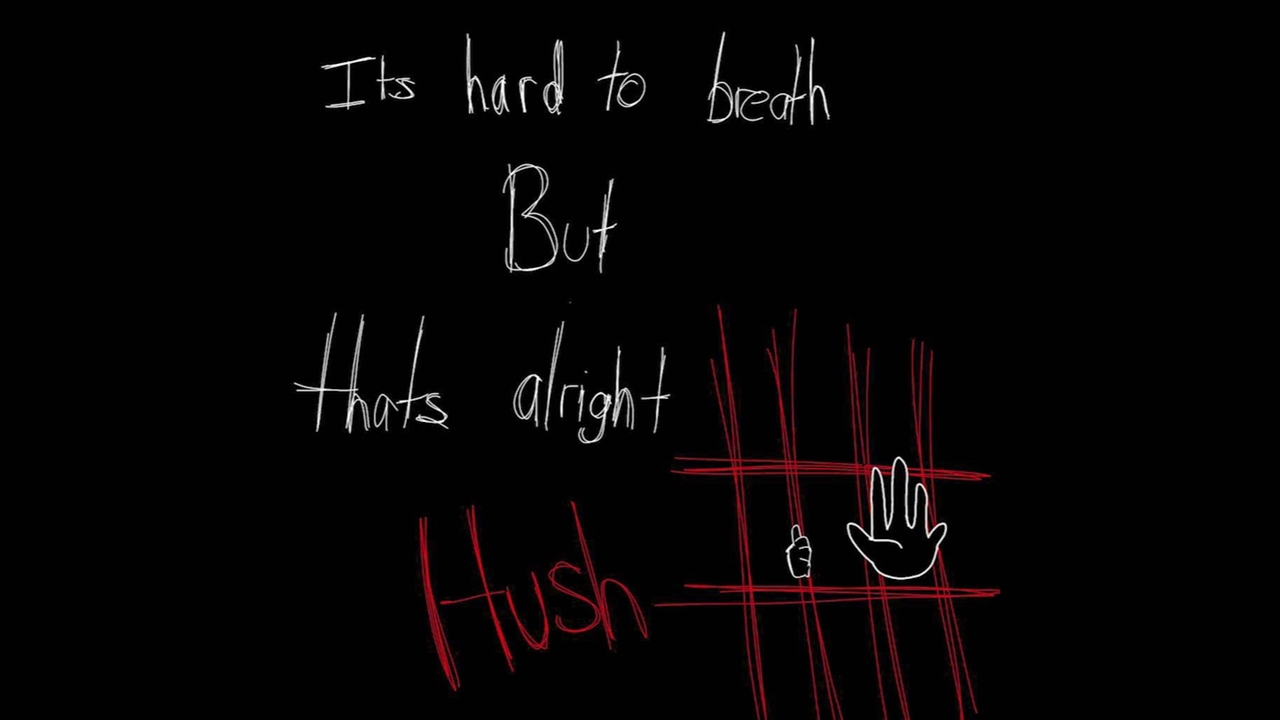 Its hard to breath
But
thats alright
Hush